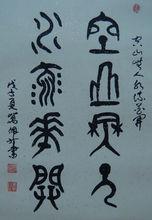 空山無人水流花開
空山無人
水流花開
戊子夏